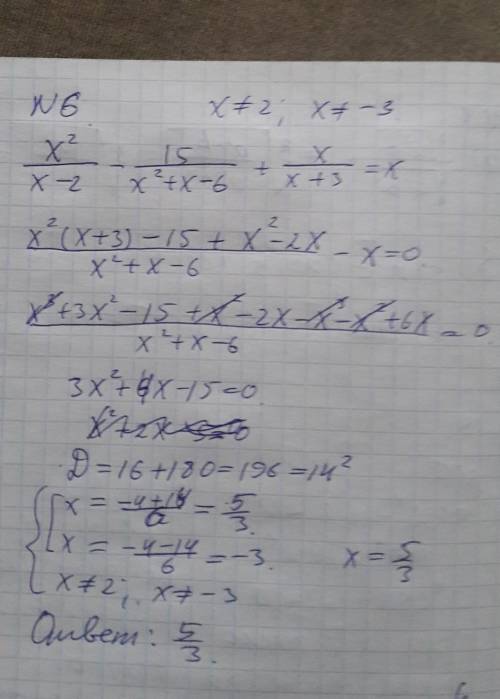 N6 x ≠ 2; x ≠ -3
x²/(x-2) - 15/(x²+x-6) + x/(x+3) = x
(x²(x+3) - 15 + x² - 2x)/(x²+x-6) - x = 0
(x³ + 3x² - 15 + x² - 2x - x³ - x² + 6x)/(x²+x-6) = 0
3x² + 4x - 15 = 0
D = 16 + 180 = 196 = 14²
x = (-4+14)/6 = 5/3
x = (-4-14)/6 = -3. x = 5/3
x ≠ 2; x ≠ -3
Ответ: 5/3.